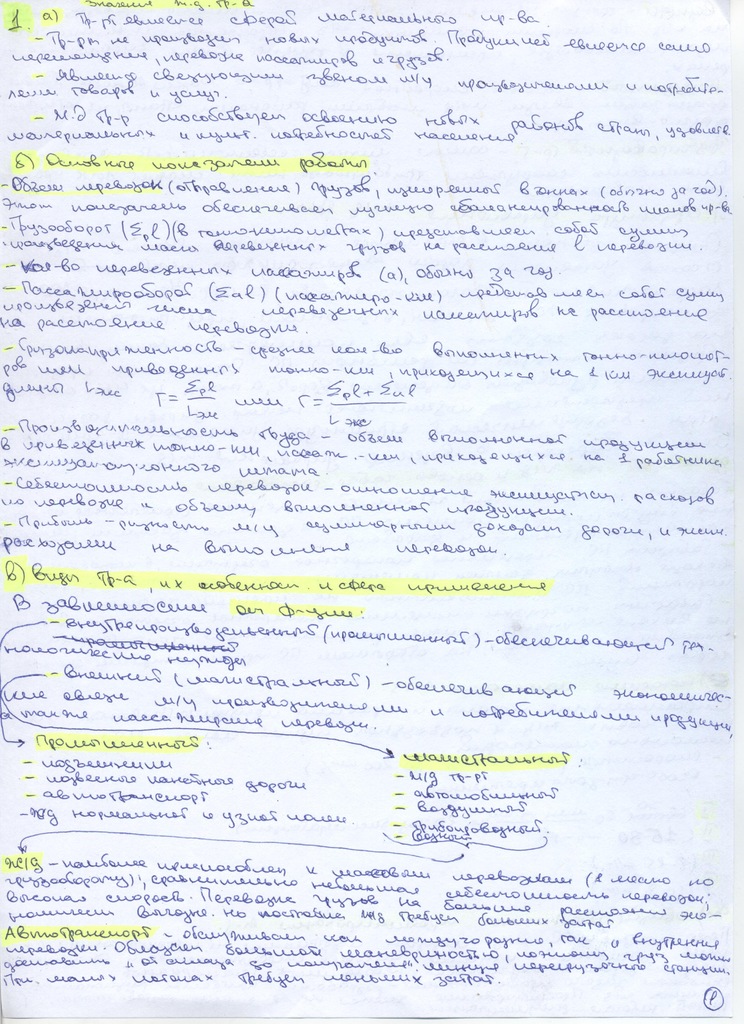 Значение ж.д. тр-а
1 а) Тр-рт является сферой материального пр-ва.
- Тр-рт не производит новых продуктов. Продукцией является само
перемещение, перевозка пассажиров и грузов.
- Является связующим звеном м/у производителями и потребите-
лями товаров и услуг.
- Ж.д тр-р способствует освоению новых районов страны, удовлетв.
материальных и культ. потребностей населения
б) Основные показатели работы
- Объем перевозок (отправление) грузов, измеренный в тоннах (обычно за год).
Этот показатель обеспечивает лучшую сбалансированность планов пр-ва
- Грузооборот (Σpl) (в тоннокилометрах) представляет собой сумму
произведений массы перевезенных грузов на расстояние l перевозки.
- Кол-во перевезенных пассажиров (a), обычно за год.
- Пассажирооборот (Σal) (пассажиро-км) представляет собой сумму
произведений числа перевезенных пассажиров на расстояние
на расстояние перевозки.
- Грузонапряженность - среднее кол-во выполненных тонно-километ-
ров или приведенных тонно-км, приходящихся на 1 км эксплуат.
длины Lэкс Г = Σpl / Lэкс или Г = Σpl + Σal / Lэкс
- Производительность труда - объем выполненной продукции
в приведенных тонно-км, пассаж.-км, приходящихся на 1 работника
эксплуатационного штата.
- Себестоимость перевозок - отношение эксплуатац. расходов
по перевозке к объему выполненной продукции.
- Прибыль - разность м/у суммарными доходами дороги, и эксп.
расходами на выполнение перевозок.
в) Виды тр-а, их особенност. и сфера применения
В зависимости от ф-ции:
- внутрипроизводственный (промышленный) - обеспечивающий тех-
нологические нужды
- внешний (магистральный) - обеспечивающий экономичес-
кие связи м/у производителями и потребителями продукции,
а также пассажирские перевозки.
Промышленный:
- подъемники
- подвесные канатные дороги
- автотранспорт
- ж/д нормальной и узкой колеи
магистральный:
- ж/д тр-рт
- автомобильный
- воздушный
- трубопроводный
- водный
Ж/Д - наиболее приспособлен к массовым перевозкам (1 место по
грузообороту), сравнительно небольшая себестоимость перевозок,
высокая скорость. Перевозка грузов на большие расстояния эко-
номически выгодна. Но постройка ж/д требует больших затрат
Автотранспорт - обслуживает как междугородние, так и внутренние
перевозки. Обладает большой маневренностью, поэтому груз можно
доставить "от склада до" минуя перегрузочные станции.
При малых потоках требует меньших затрат.
1